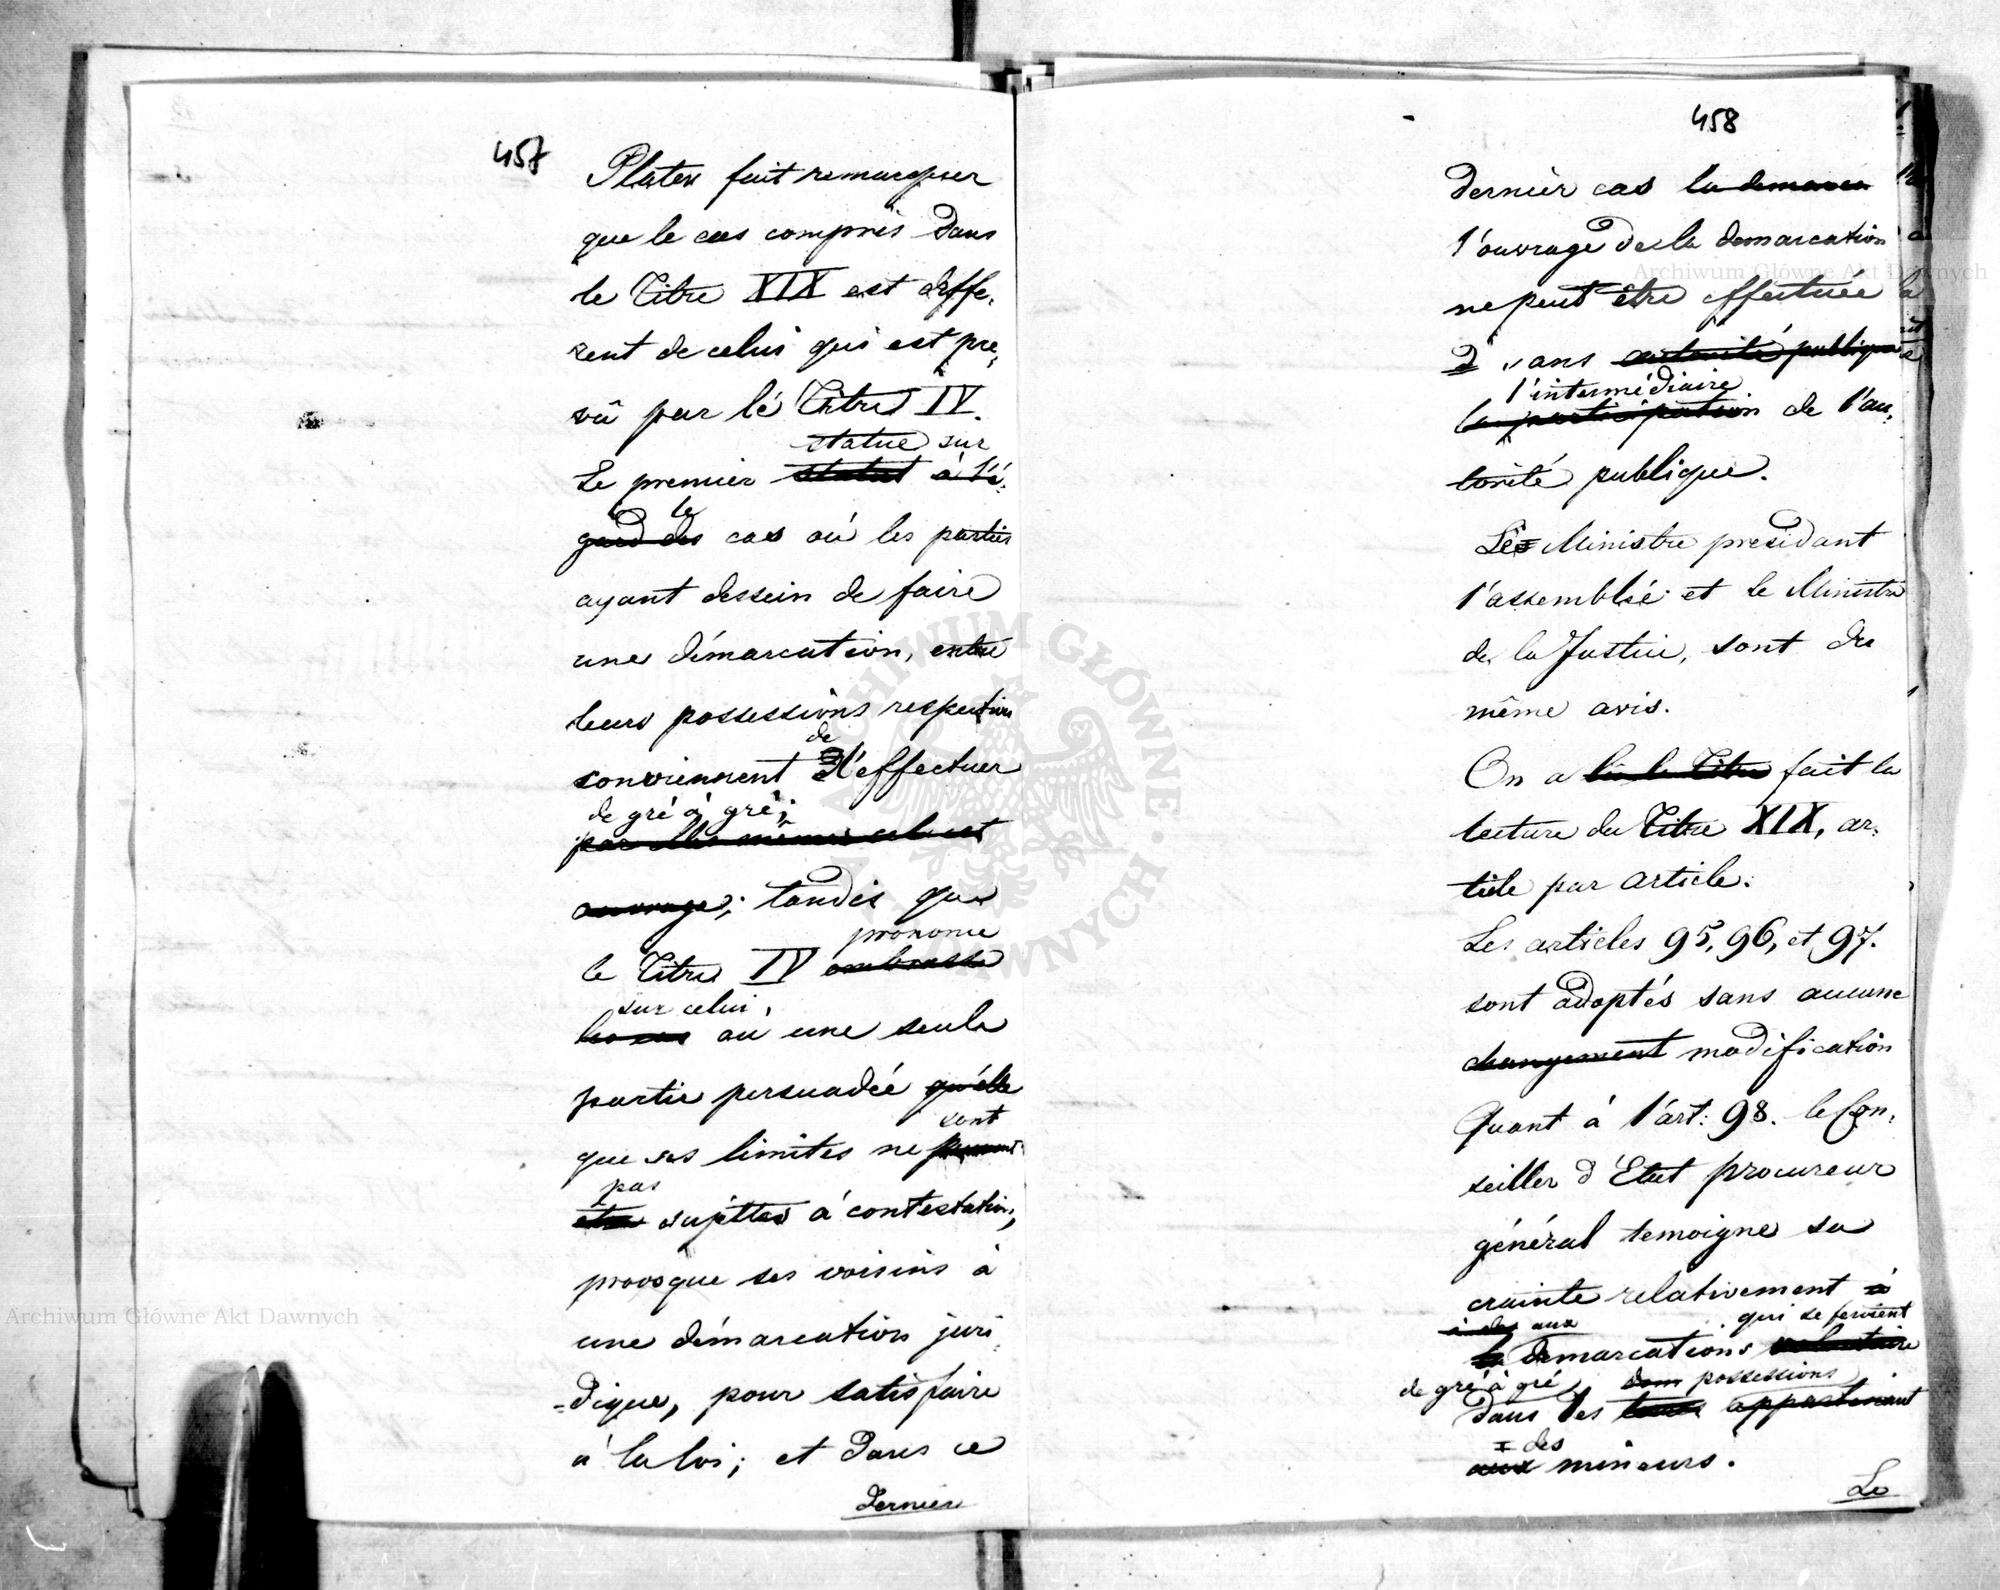 457
Plater fait remarquer
que le cas compris dans
le Titre XIX est diffe,
rent de celui qui est pre,
vû par le Titre IV.
statue sur
Le premier statut à l'é,
le
gard des cas où les parties
ayant dessein de faire
une démarcation, entre
leurs possessions respectives
de
conviennent d l'effectuer
de gré à gré;
par elles mêmes cel
ouvrage; tandis que
prononce
le Titre IV embrasse
sur celui
les cas où une seule
partie persuadée qu'elle
sont
que ses limites ne
pas
etre sujettes à contestation,
provoque ses voisins à
une démarcation juri,
=dique, pour satisfaire
à la loi; et dans ce
dernier
458
dernier cas la demarca
l'ouvrage de la demarcation
ne peut être effectuée
sans autorité publique
l'intermédiaire
la participation de l'au,
torité publique.
Les Ministre presidant
l'assemblée et le Ministre
de la Justice, sont du
même avis.
On a lu le Titre fait la
lecture du Titre XIX, ar,
ticle par article.
Les articles 95, 96, et 97.
sont adoptés sans aucune
changement modification
Quant à l'art: 98. le Con,
seiller d'Etat procureur
général temoigne sa
crainte relativement à
à des aux qui se feroient
la demarcations volontaire
de gré à gré, dom possessions
dans les appartenant
des
aux mineurs.
Le
Archiwum Główne Akt Dawnych
Archiwum Główne Akt Dawnych
ARCHIWUM GŁÓWNE AKT DAWNYCH